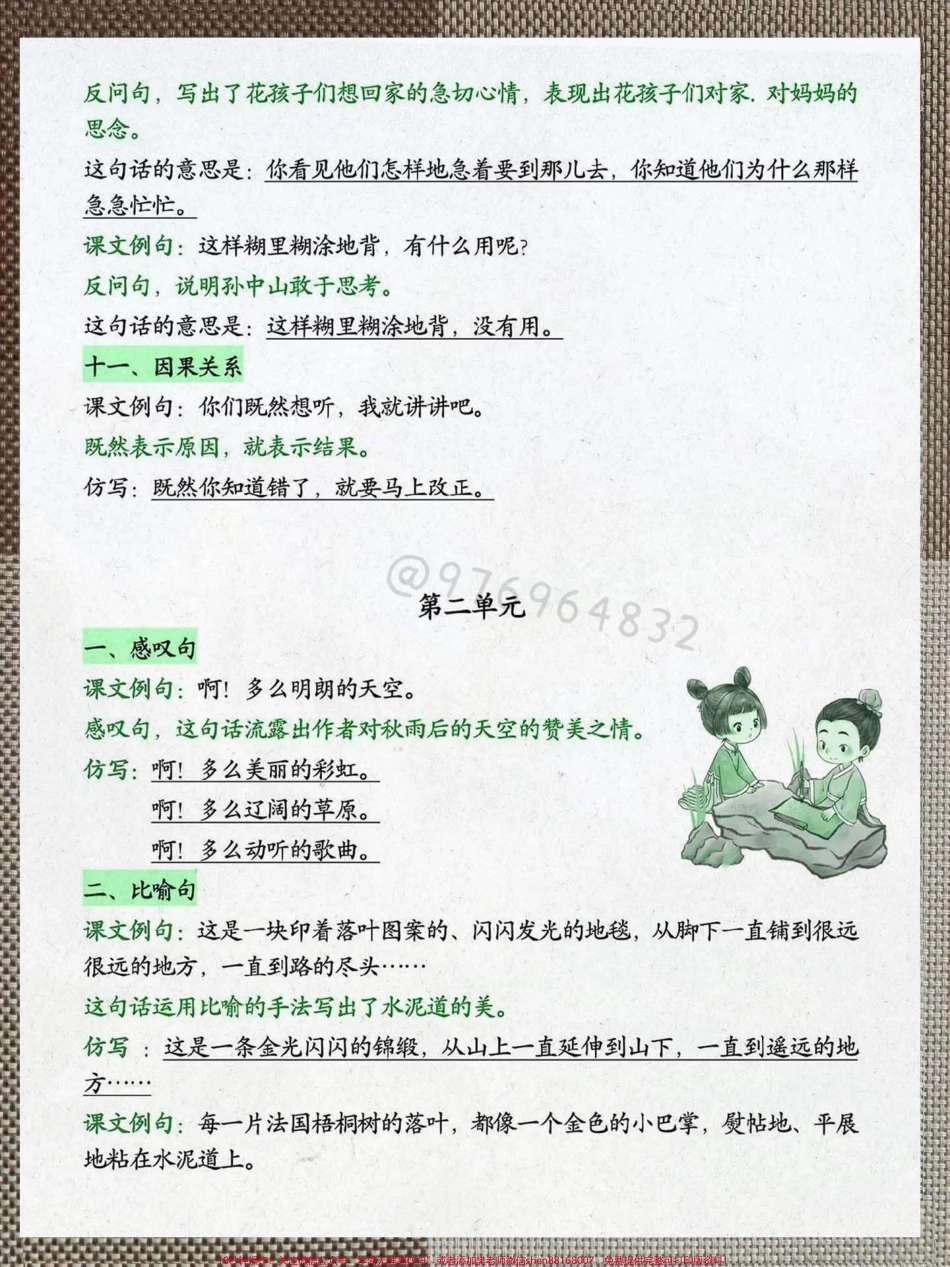 反问句，写出了花孩子们想回家的急切心情，表现出花孩子们对家．对妈妈的
思念。
这句话的意思是：你看见他们怎样地急着要到那儿去，你知道他们为什么那样
急急忙忙。
课文例句：这样糊里糊涂地背，有什么用呢？
反问句，说明孙中山敢于思考。
这句话的意思是：这样糊里糊涂地背，没有用。
十一、因果关系
课文例句：你们既然想听，我就讲讲吧。
既然表示原因，就表示结果。
仿写：既然你知道错了，就要马上改正。
@976964832
第二单元
一、感叹句
课文例句：啊！多么明朗的天空。
感叹句，这句话流露出作者对秋雨后的天空的赞美之情。
仿写：啊！多么美丽的彩虹。
啊！多么辽阔的草原。
啊！多么动听的歌曲。
二、比喻句
课文例句：这是一块印着落叶图案的、闪闪发光的地毯，从脚下一直铺到很远
很远的地方，一直到路的尽头……
这句话运用比喻的手法写出了水泥道的美。
仿写 ：这是一条金光闪闪的锦缎，从山上一直延伸到山下，一直到遥远的地
方……
课文例句：每一片法国梧桐树的落叶，都像一个金色的小巴掌，熨帖地、平展
地粘在水泥道上。